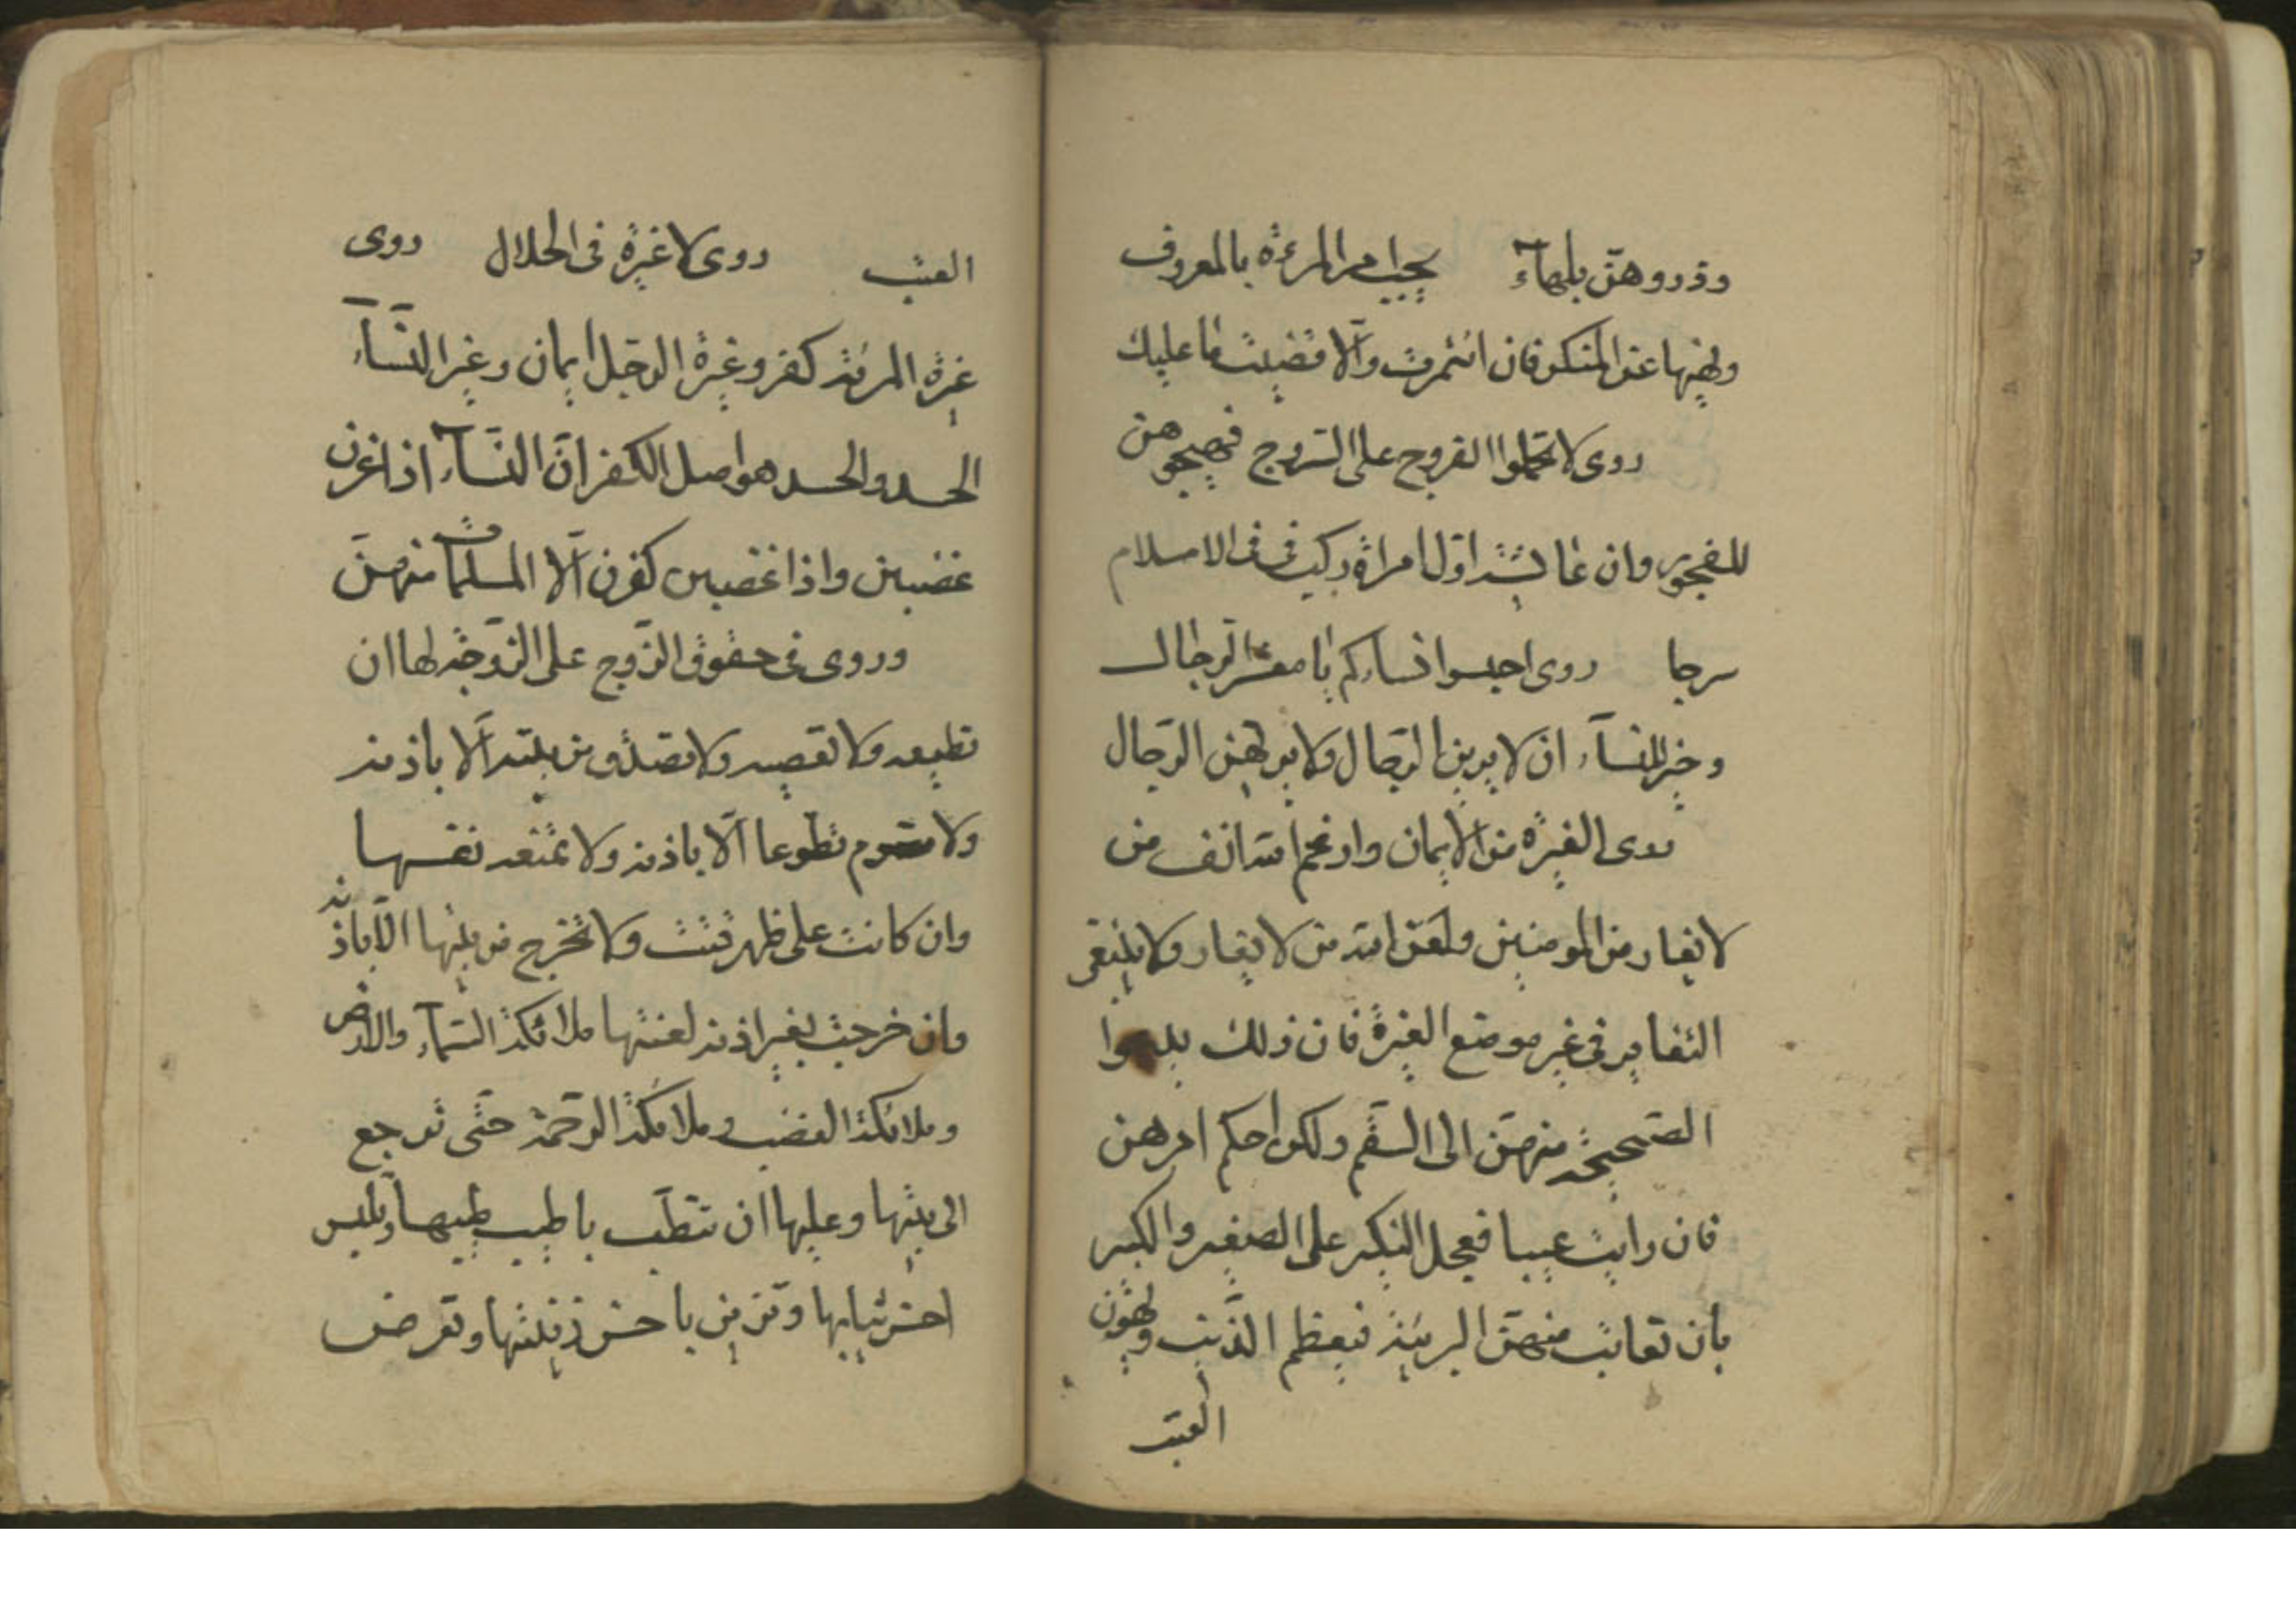 وذروهن بلهاء يجب امر المرءة بالمعروف
ونهيها عن المنكر فان ائتمرت والا قضيت ما عليك
روى لا تحملوا الفروج على السروج فتهيجوهن
للفجور وان عايشة اول امراة ركبت في الاسلام
سرجا روى احبسوا نساءكم يا معشر الرجال
وخير للنسآء ان لا يرين الرجال ولا يريهن الرجال
روى الغيرة من الايمان وارغم الله انف من
لا يغار من المومنين ولعن الله من لا يغار ولا ينبغى
التغاير فى غير موضع الغيرة فان ذلك يدعوا
الصحيحة منهن الى السقم ولكن احكم امرهن
فان رايت عيبا فعجل النكير على الصغير والكبير
بان تعاتب منهن البريئة فيعظم الذنب ويهون
العتب
العتب روى لا غيرة فى الحلال روى
غيرة المرئة كفر وغيرة الرجل ايمان وغير النسآء
الحسد والحسد هو اصل الكفر ان النسآء اذا غرن
غضبن واذا غضبن كفرن الا المسلمات منهن
وروى فى حقوق الزوج على الزوجة لها ان
تطيعه ولا تعصيه ولا تصدق من بيته الا باذنه
ولا تصوم تطوعا الا باذنه ولا تمنعه نفسها
وان كانت على ظهر قتب ولا تخرج من بيتها الا باذنه
وان خرجت بغير اذنه لعنتها ملائكة السمآء والارض
وملائكة الغضب وملائكة الرحمة حتى ترجع
الى بيتها وعليها ان تتطيب باطيب طيبها وتلبس
احسن ثيابها وتزين باحسن زينتها وتعرض